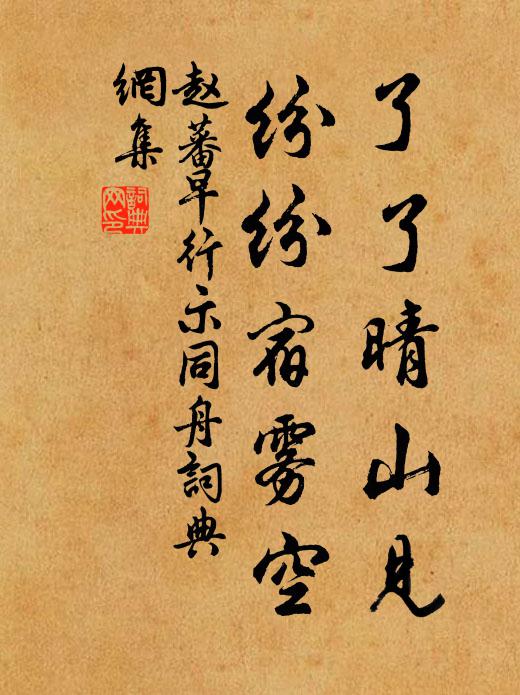 了了晴山见
纷纷宿雾空
赵蕃早行示同舟詞典
網集
詞典
网印